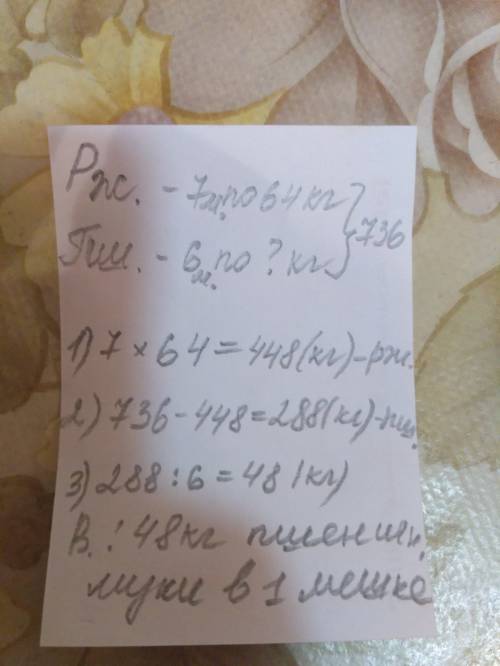 Рж. - 7м. по 64 кг } 736
Пш. - 6м. по ? кг
1) 7 × 64 = 448 (кг) - рж.
2) 736 - 448 = 288 (кг) - пш.
3) 288 : 6 = 48 (кг)
В.: 48 кг пшеничн.
муки в 1 мешке